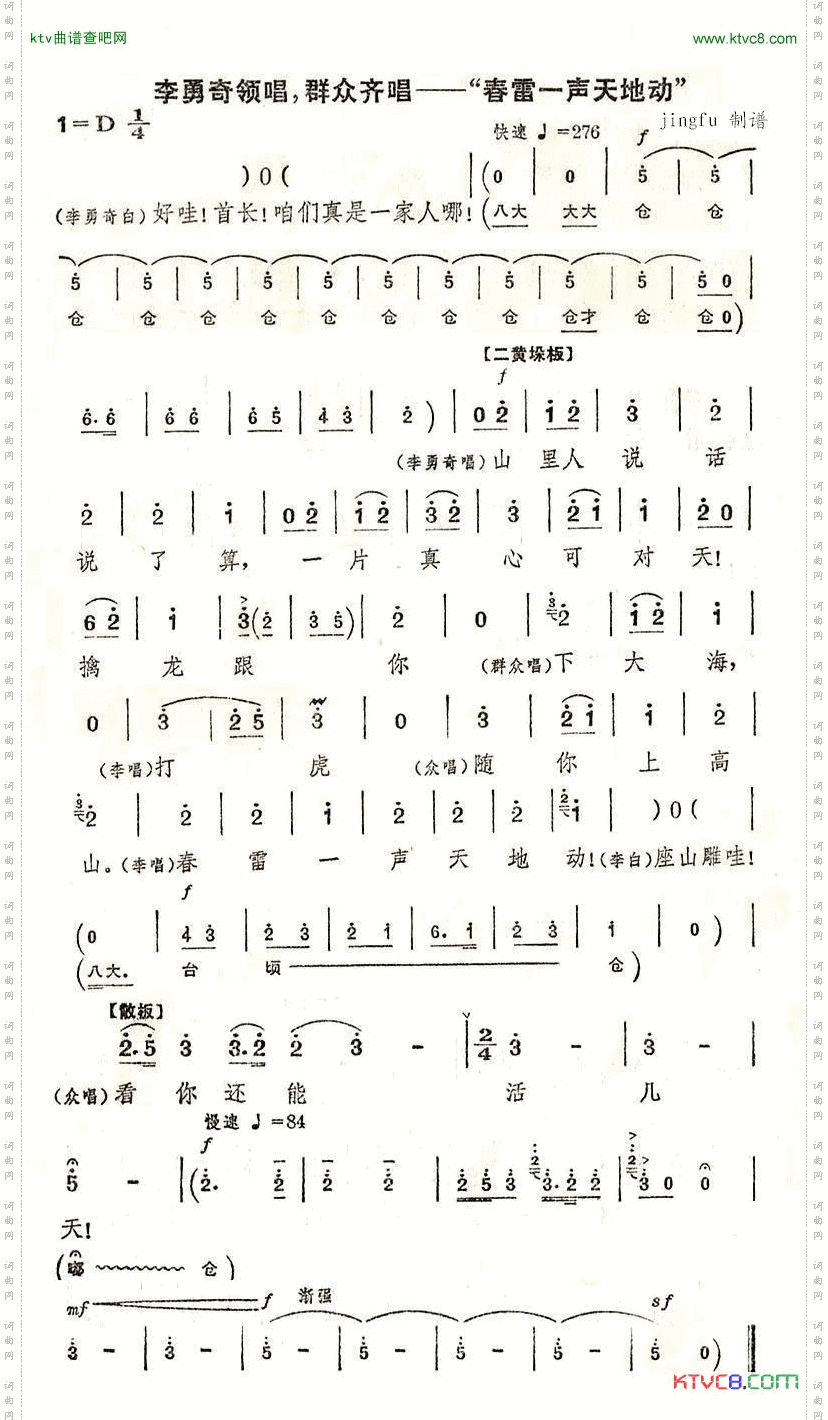 ktv曲谱查吧网 www.ktvc8.com
李勇奇领唱,群众齐唱——“春雷一声天地动”
1=D 1/4 快速 ♩=276 f jingfu 制谱
)0( | (0 | 0 | 5 | 5
(李勇奇白)好哇!首长!咱们真是一家人哪!(八大 大大 仓 仓
5 | 5 | 5 | 5 | 5 | 5 | 5 | 5 | 5 | 5 0
仓 仓 仓 仓 仓 仓 仓 仓才 仓 仓0)
【二黄垛板】
f
6.6 | 6 6 | 6 5 | 4 3 | 2 ) | 0 2 | 1 2 | 3 | 2
(李勇奇唱)山 里人 说 话
2 | 2 | 1 | 0 2 | 1 2 | 3 2 | 3 | 2 1 | 1 | 2 0
说 了 算, 一 片 真 心 可 对 天!
6 2 | 1 | 3(2 | 3 5 | 2 | 0 | 3 2 | 1 2 | 1
擒 龙 跟 你 (群众唱)下 大 海,
0 | 3 | 2 5 | 3 | 0 | 3 | 2 1 | 1 | 2
(李唱)打 虎 (众唱)随 你 上 高
3 2 | 2 | 2 | 1 | 2 | 2 | 1 | 2 1 | )0(
山。(李唱)春 雷 一 声 天 地 动!(李白)座山雕哇!
f
(0 | 4 3 | 2 3 | 2 1 | 6.1 | 2 3 | 1 | 0 )
(八大. 台 顷 仓)
【散板】
2.5 3 3.2 2 3 - | 2/4 3 - | 3 - |
(众唱)看 你 还 能 活 几
慢速 ♩=84
f
5 - | (2. 2 | 2 2 | 2 5 3 2 3.2 2 | 2 3 0 0 |
天!
(嘟 仓)
mf f 渐强 sf
3 - | 3 - | 5 - | 5 - | 5 - | 5 0)
KTVC8.COM